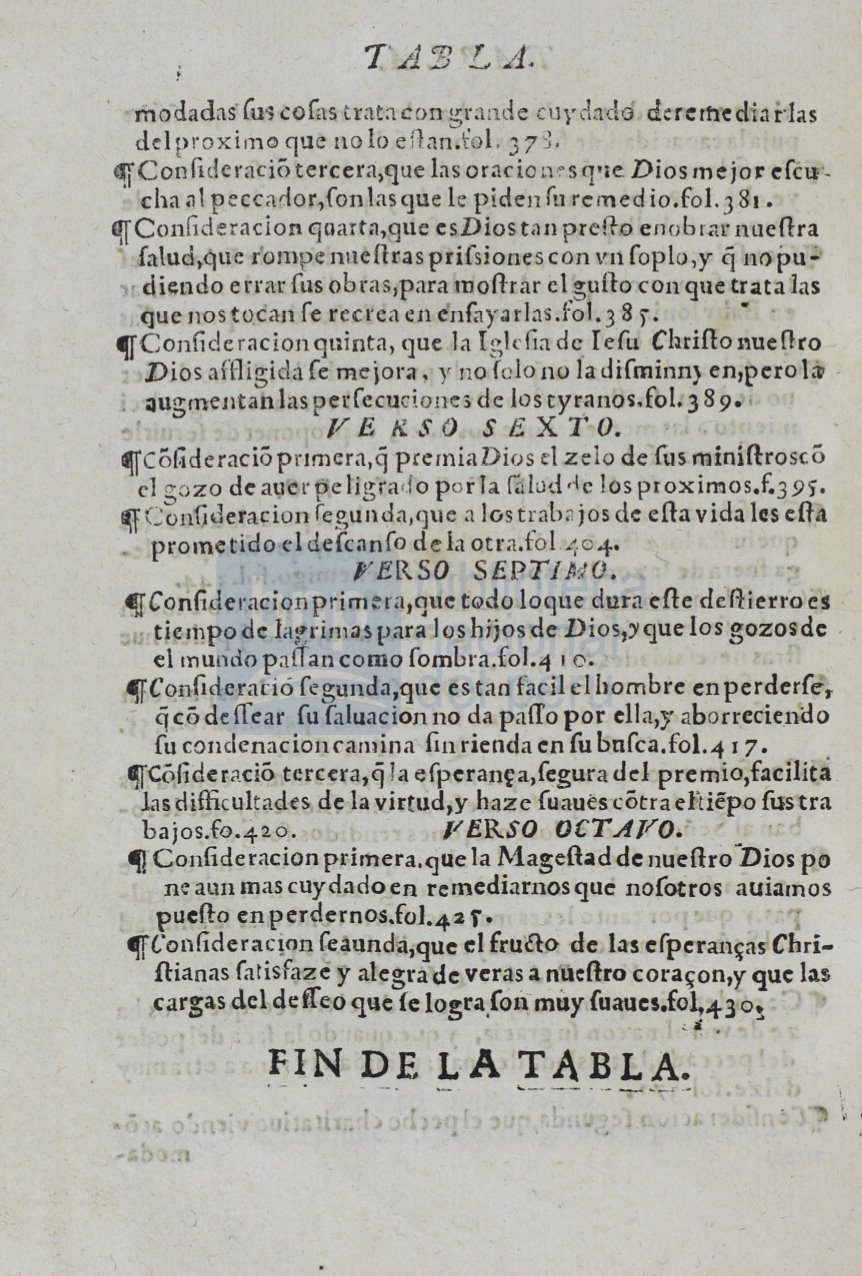 TABLA.
modadas ſus coſas trata con grande cuydado de remediar las
del proximo que no lo eſtan.fol. 378.
¶ Conſideraciõ tercera,que las oraciones que Dios mejor eſcu-
cha al peccador,ſon las que le piden ſu remedio.fol.381.
¶ Conſideracion quarta,que es Dios tan preſto en obrar nueſtra
ſalud,que rompe nueſtras priſsiones con vn ſoplo,y q̃ no pu-
diendo errar ſus obras,para moſtrar el guſto con que trata las
que nos tocan ſe recrea en enſayarlas.fol.385.
¶ Conſideracion quinta, que la Igleſia de Ieſu Chriſto nueſtro
Dios affligida ſe mejora, y no ſolo no la diſminuyen,pero la
augmentan las perſecuciones de los tyranos.fol.389.
VERSO SEXTO.
¶ Cõſideraciõ primera,q̃ premia Dios el zelo de ſus miniſtros cõ
el gozo de auer peligrado por la ſalud de los proximos.f.395.
¶ Conſideracion ſegunda,que a los trabajos de eſta vida les eſta
prometido el deſcanſo de la otra.fol 404.
VERSO SEPTIMO.
¶ Conſideracion primera,que todo lo que dura eſte deſtierro es
tiempo de lagrimas para los hijos de Dios,y que los gozos de
el mundo paſſan como ſombra.fol.410.
¶ Conſideració ſegunda,que es tan facil el hombre en perderſe,
q̃ cõ deſſear ſu ſaluacion no da paſſo por ella,y aborreciendo
ſu condenacion camina ſin rienda en ſu buſca.fol.417.
¶ Cõſideraciõ tercera,q̃ la eſperança,ſegura del premio,facilita
las difficultades de la virtud,y haze ſuaues cõtra el tiẽpo ſus tra
bajos.fo.420. VERSO OCTAVO.
¶ Conſideracion primera,que la Mageſtad de nueſtro Dios po
ne aun mas cuydado en remediarnos que noſotros auiamos
pueſto en perdernos.fol.425.
¶ Conſideracion ſeaunda,que el fructo de las eſperanças Chri-
ſtianas ſatisfaze y alegra de veras a nueſtro coraçon,y que las
cargas del deſſeo que ſe logra ſon muy ſuaues.fol,430,
FIN DE LA TABLA.